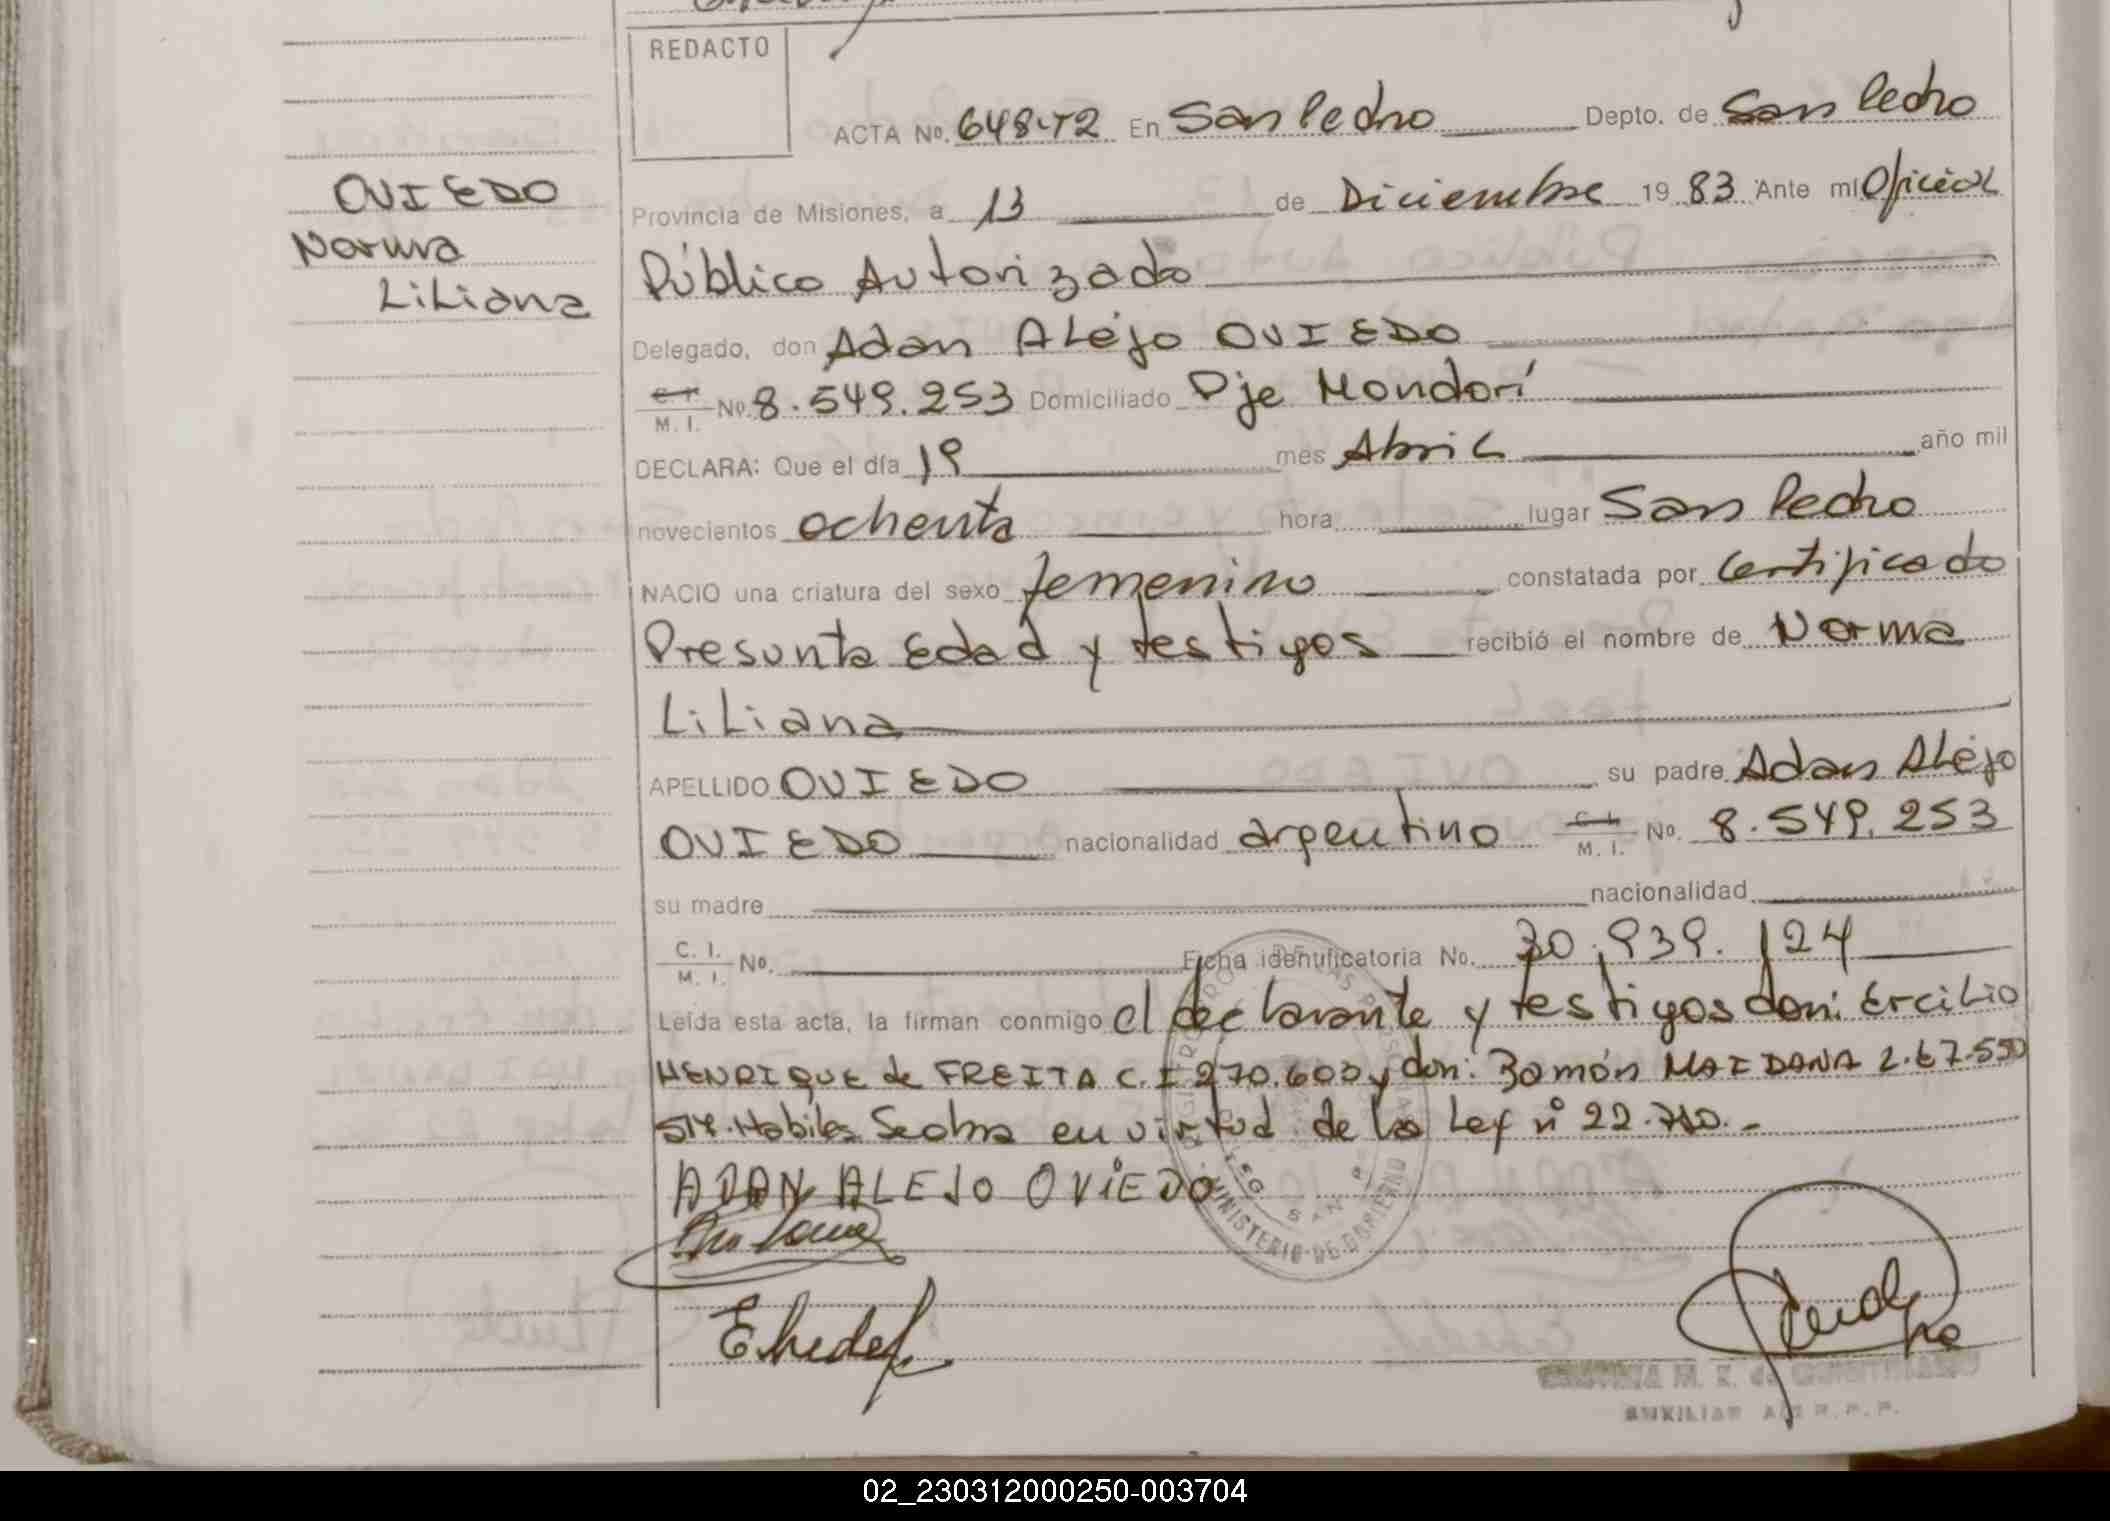 REDACTO
ACTA Nº. 648-T2 En San Pedro Depto. de San Pedro
OVIEDO
Norma
Liliana
Provincia de Misiones, a 13 de Diciembre 1983. Ante mí Oficial
Público Autorizado
Delegado, don Adan Alejo OVIEDO
C. I.
M. I. Nº. 8.549.253 Domiciliado Pje Mondorí
DECLARA: Que el día 19 mes Abril año mil
novecientos ochenta hora lugar San Pedro
NACIO una criatura del sexo femenino constatada por Certificado
Presunta Edad y testigos recibió el nombre de Norma
Liliana
APELLIDO OVIEDO su padre Adan Alejo
OVIEDO nacionalidad argentino C. I. M. I. Nº. 8.549.253
su madre nacionalidad
C. I.
M. I. Nº. Ficha identificatoria No. 30.939.124
Leída esta acta, la firman conmigo el declarante y testigos don: Ercilio
HENRIQUE de FREITA C.I 270.600 y don: Ramón MAIDANA 2.67.550
SM. Habiles Se obra en virtud de la Ley nº 22.710.-
ADAN ALEJO OVIEDO
MINISTERIO DE GOBIERNO
AUXILIAR
02_230312000250-003704